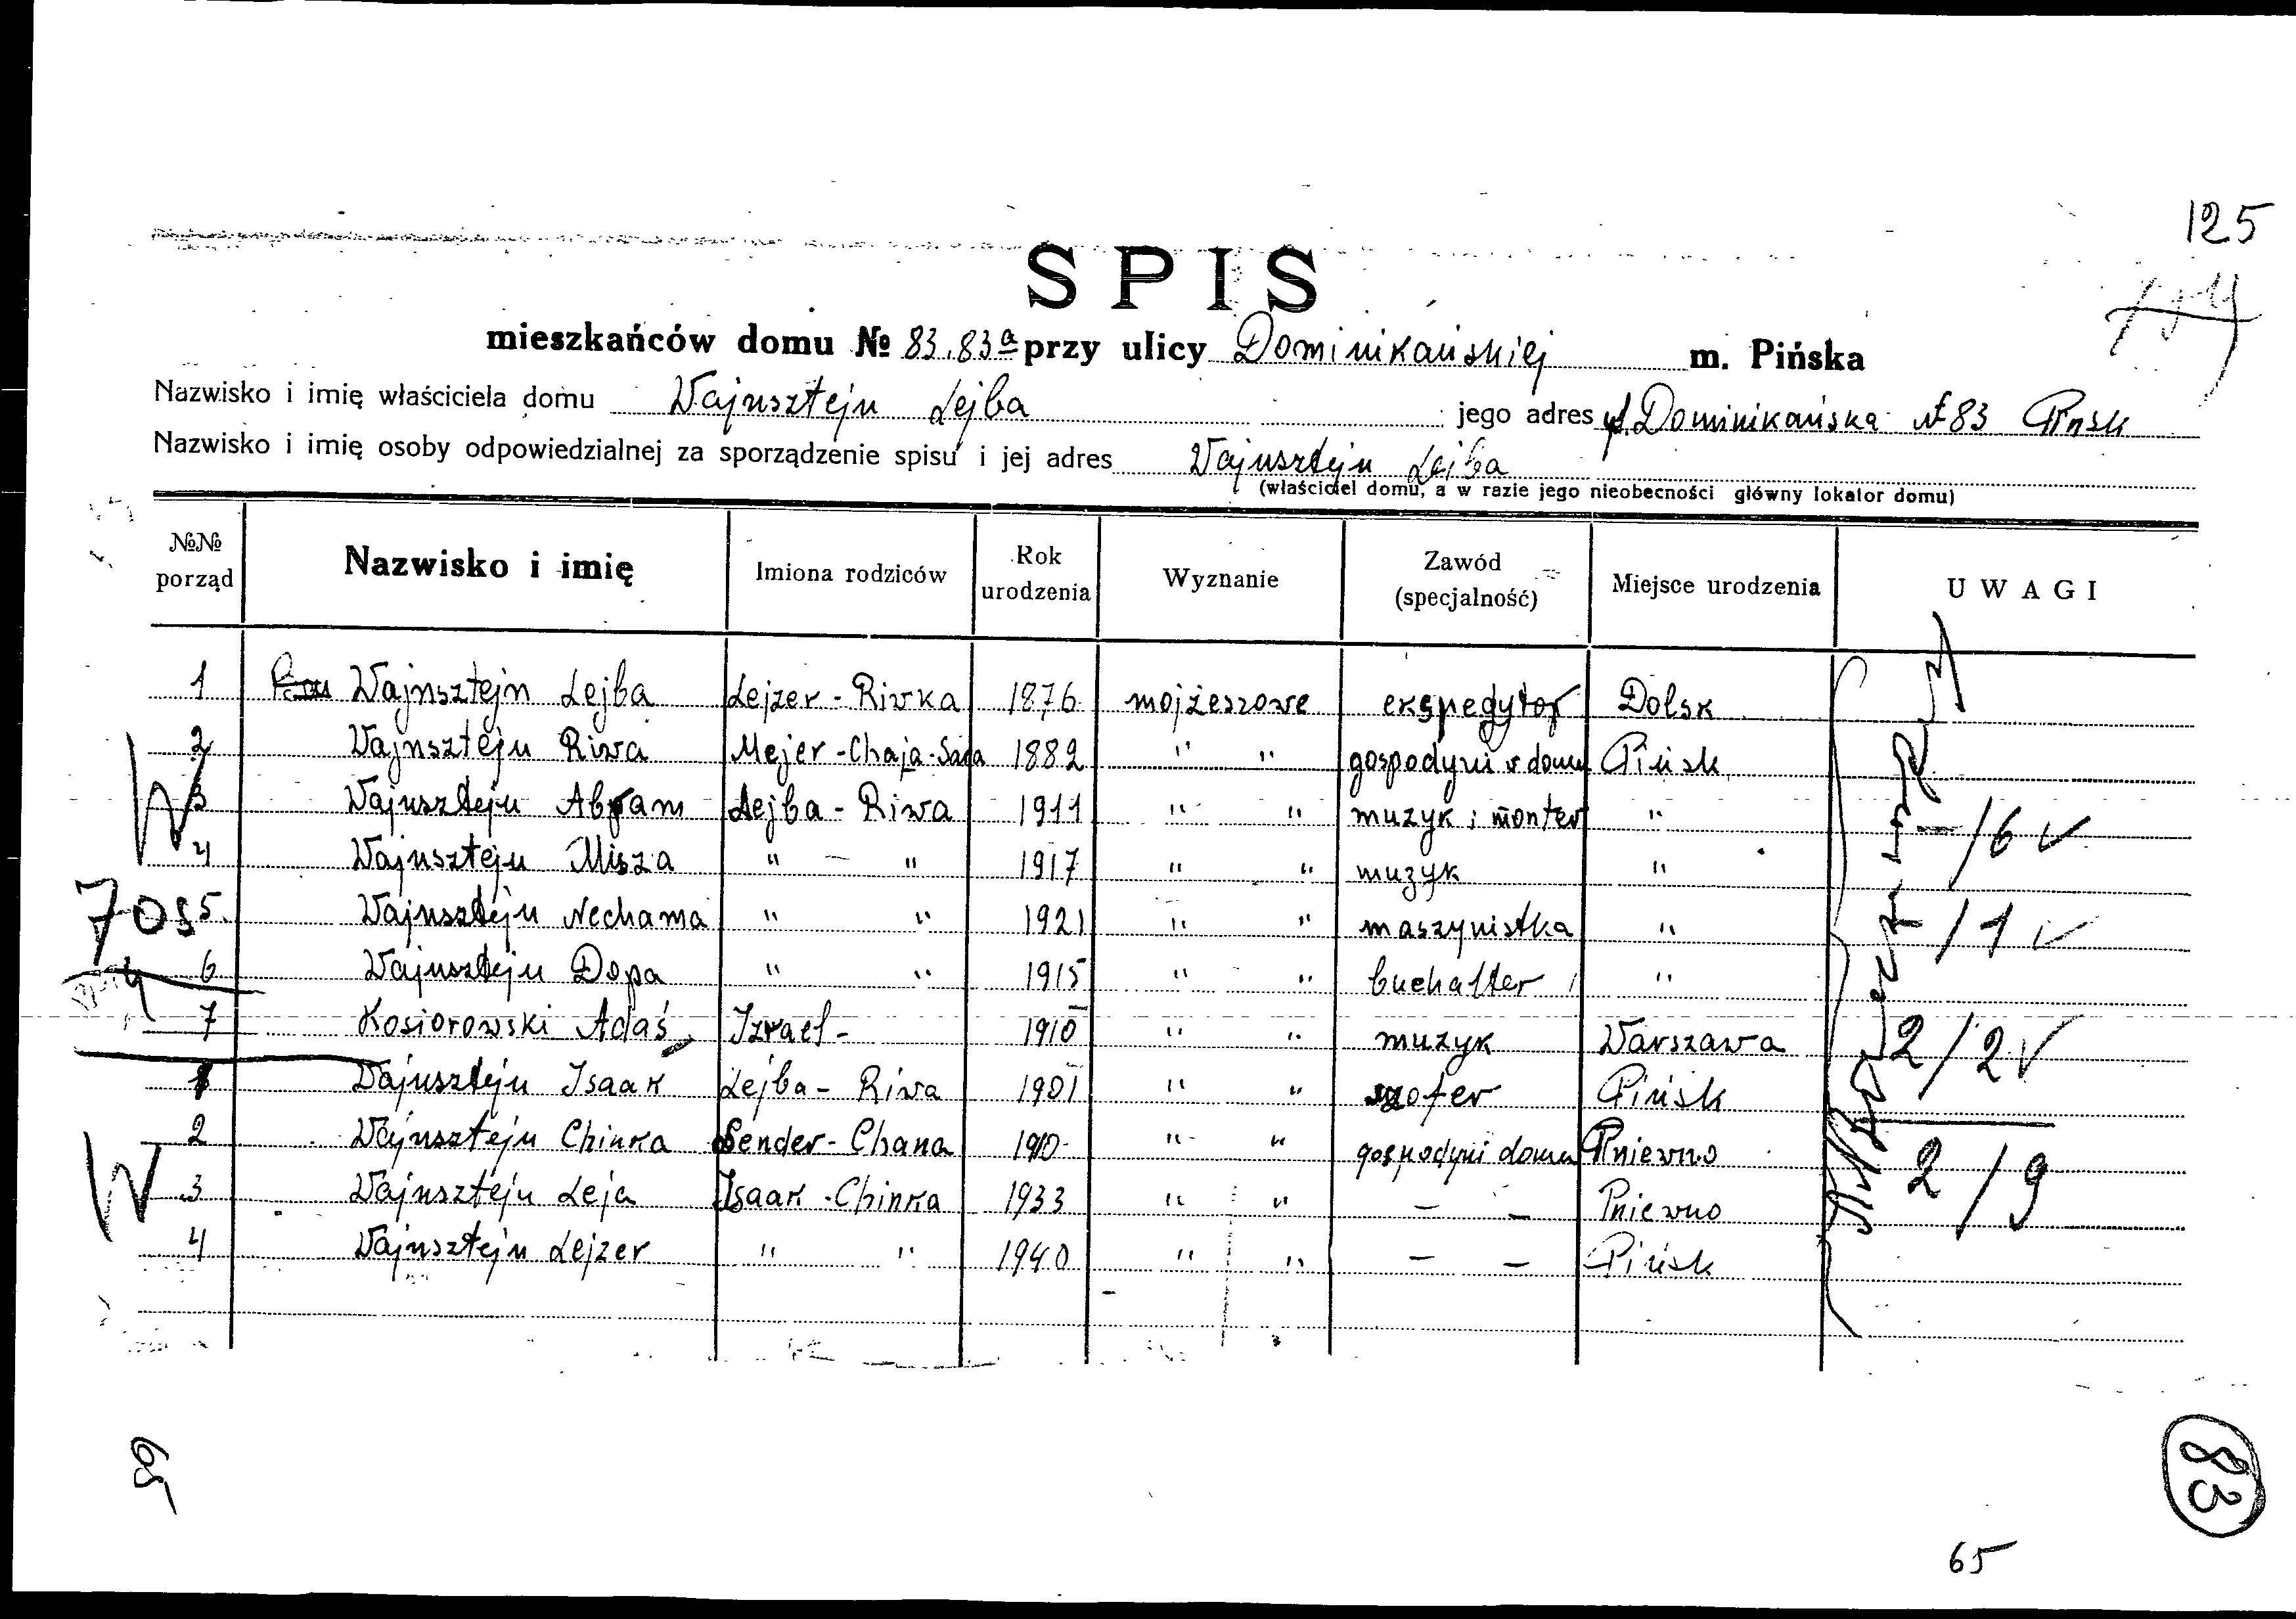 125
SPIS
mieszkańców domu № 83.83a przy ulicy Dominikańskiej m. Pińska
Nazwisko i imię właściciela domu Wajnsztejn Lejba jego adres ul. Dominikańska № 83 Pinsk
Nazwisko i imię osoby odpowiedzialnej za sporządzenie spisu i jej adres Wajnsztejn Lejba
(właściciel domu, a w razie jego nieobecności główny lokator domu)
№№ porząd Nazwisko i imię Imiona rodziców Rok urodzenia Wyznanie Zawód (specjalność) Miejsce urodzenia UWAGI
1 Wajnsztejn Lejba Lejzer - Rivka 1876 mojżeszowe ekspedytor Dolsk
2 Wajnsztejn Riwa Mejer - Chaja - Sara 1882 " " gospodyni w domu Pińsk
3 Wajnsztejn Abram Lejba - Riwa 1911 " " muzyk i monter "
4 Wajnsztejn Misza " — " 1917 " " muzyk " /6 ✓
5 Wajnsztejn Nechama " " 1921 " " maszynistka " /1 ✓
6 Wajnsztejn Dopa " " 1915 " " buchalter "
7 Kosiorowski Adaś Izrael - 1910 " " muzyk Warszawa 2/2 ✓
1 Wajnsztejn Isaak Lejba - Riwa 1901 " " szofer Pińsk
2 Wajnsztejn Chinka Sender - Chana 1910 " " gospodyni domu Pniewno 2/9
3 Wajnsztejn Leja Isaak - Chinka 1933 " " — — Pniewno
4 Wajnsztejn Lejzer " " 1940 " " — — Pińsk
W
7 os
W
65
83
65